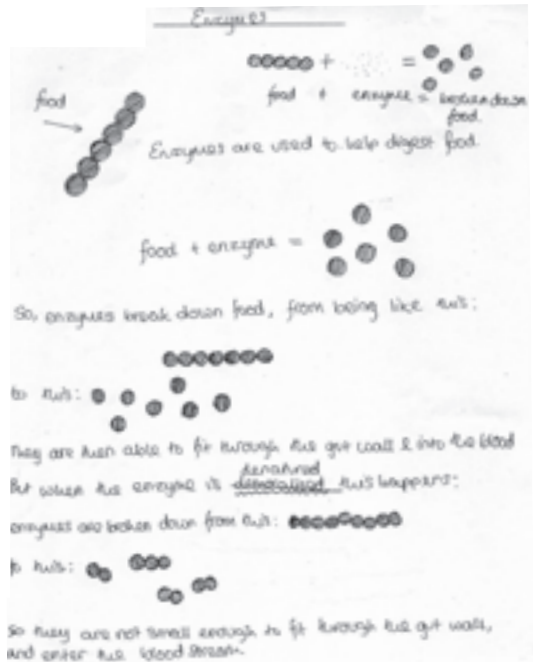 Enzymes
+ =
food + enzyme = broken down
food.
food
Enzymes are used to help digest food.
food + enzyme =
So, enzymes break down food, from being like this:
to this:
They are then able to fit through the gut wall & into the blood
denatured
But when the enzyme is this happens:
enzymes are broken down from this:
to this:
So they are not small enough to fit through the gut wall,
and enter the blood stream.